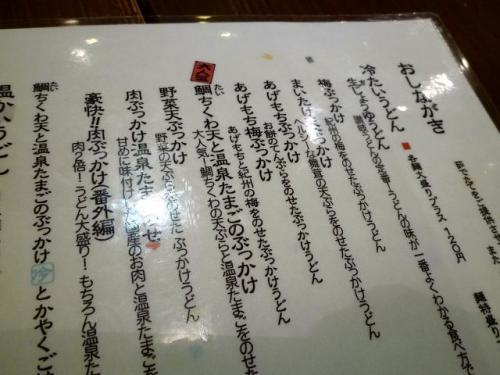 おしながき
冷たいうどん
各麺大盛りプラス 120円
生じょうゆうどん
うどんの味が一番よくわかる食べ方で
梅ぶっかけ
紀州の梅をのせたぶっかけうどん
まいたけ
ヘルシーな舞茸の天ぷらをのせたぶっかけうどん
あげもちぶっかけ
お餅のてんぷらをのせたぶっかけうどん
あげもち梅ぶっかけ
あげもちと紀州の梅をのせたぶっかけうどん
鯛ちくわ天と温泉たまごのぶっかけ
たい
大人気!鯛ちくわの天ぷらと温泉たまごをのせた
野菜天ぶっかけ
野菜の天ぷらをのせたぶっかけうどん
肉ぶっかけ温泉たま
せ
甘めに味付
国産のお肉と温泉た
豪快!!肉ぶっかけ(番外編)
肉う倍!うどん大盛り!もちろん温泉た
鯛ちくわ天と温泉たまごのぶっかけ 冷 とかやくご
たい
温かいうどん